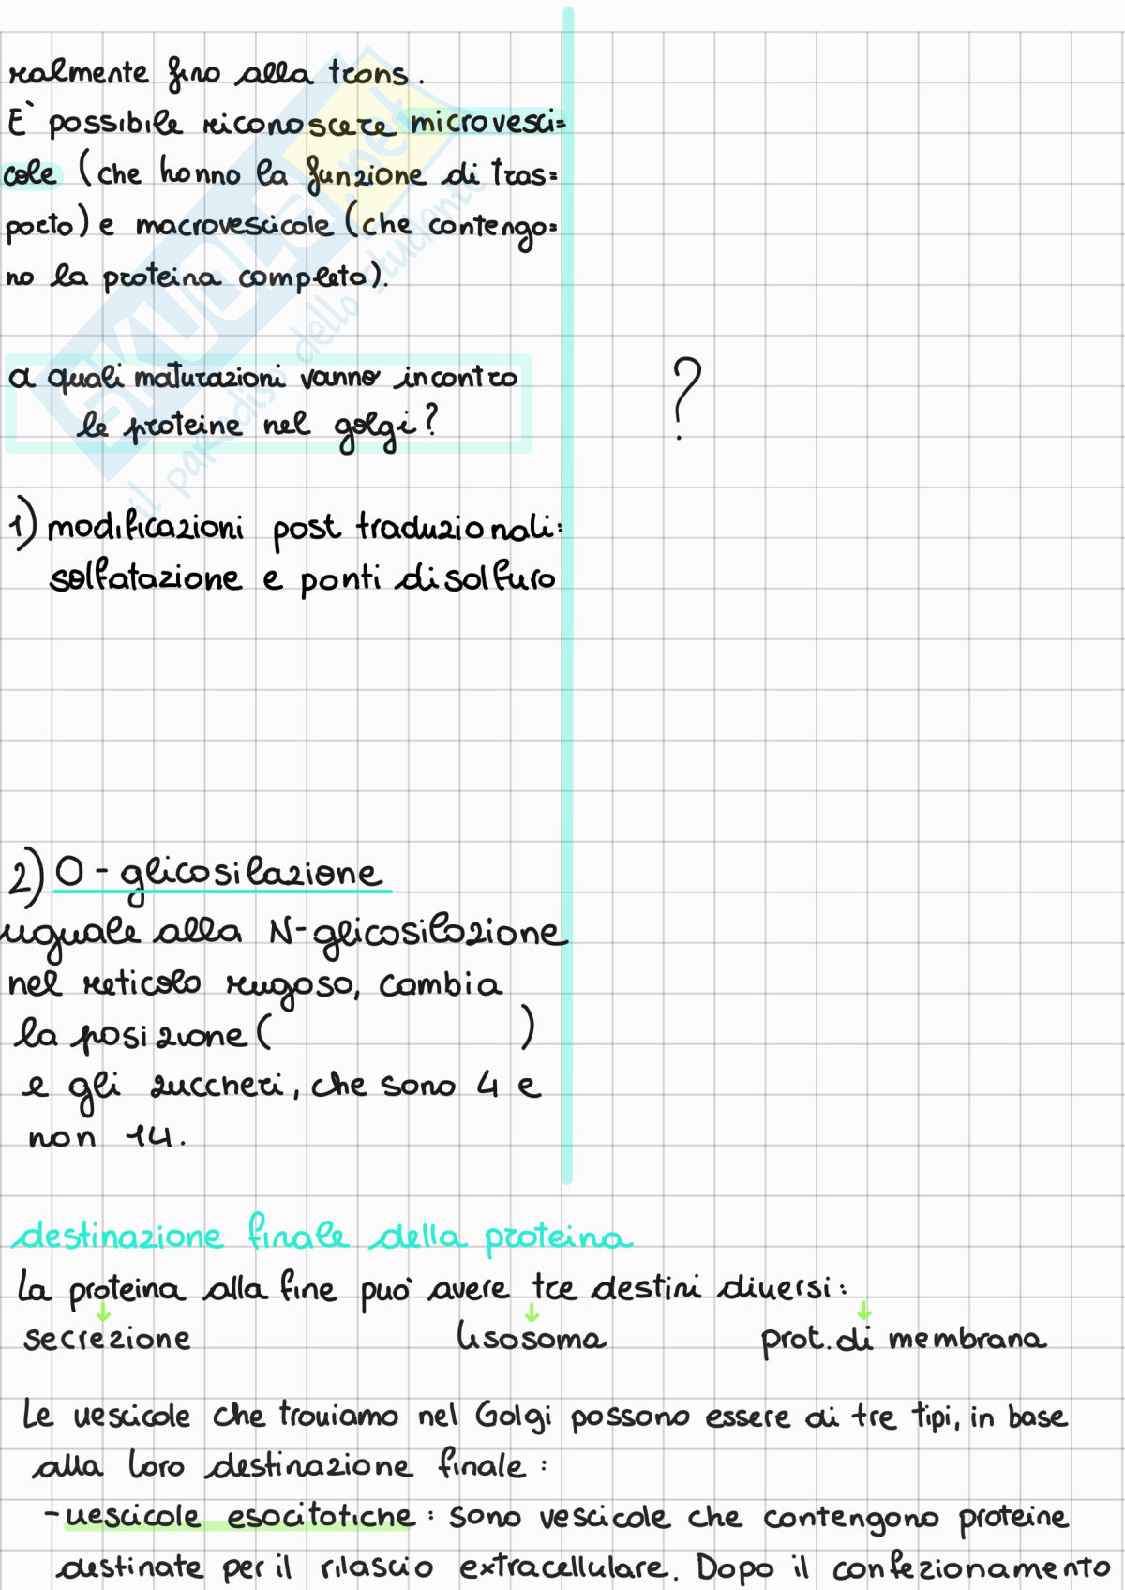 ralmente fino alla trans.
E` possibile riconoscere microvesci=
cole (che hanno la funzione di tras=
porto) e macrovescicole (che contengo=
no la proteina completa).
a quali maturazioni vanno incontro
le proteine nel golgi?
?
1) modificazioni post traduzionali:
solfatazione e ponti disolfuro
2) O-glicosilazione
uguale alla N-glicosilazione
nel reticolo rugoso, cambia
la posizione (          )
e gli zuccheri, che sono 4 e
non 14.
destinazione finale della proteina
La proteina alla fine può avere tre destini diversi:
↓ ↓ ↓
secrezione lisosoma prot. di membrana
Le vescicole che troviamo nel Golgi possono essere di tre tipi, in base
alla loro destinazione finale:
- vescicole esocitotiche: sono vescicole che contengono proteine
destinate per il rilascio extracellulare. Dopo il confezionamento
SKUOLA.net
il paradiso dello studente